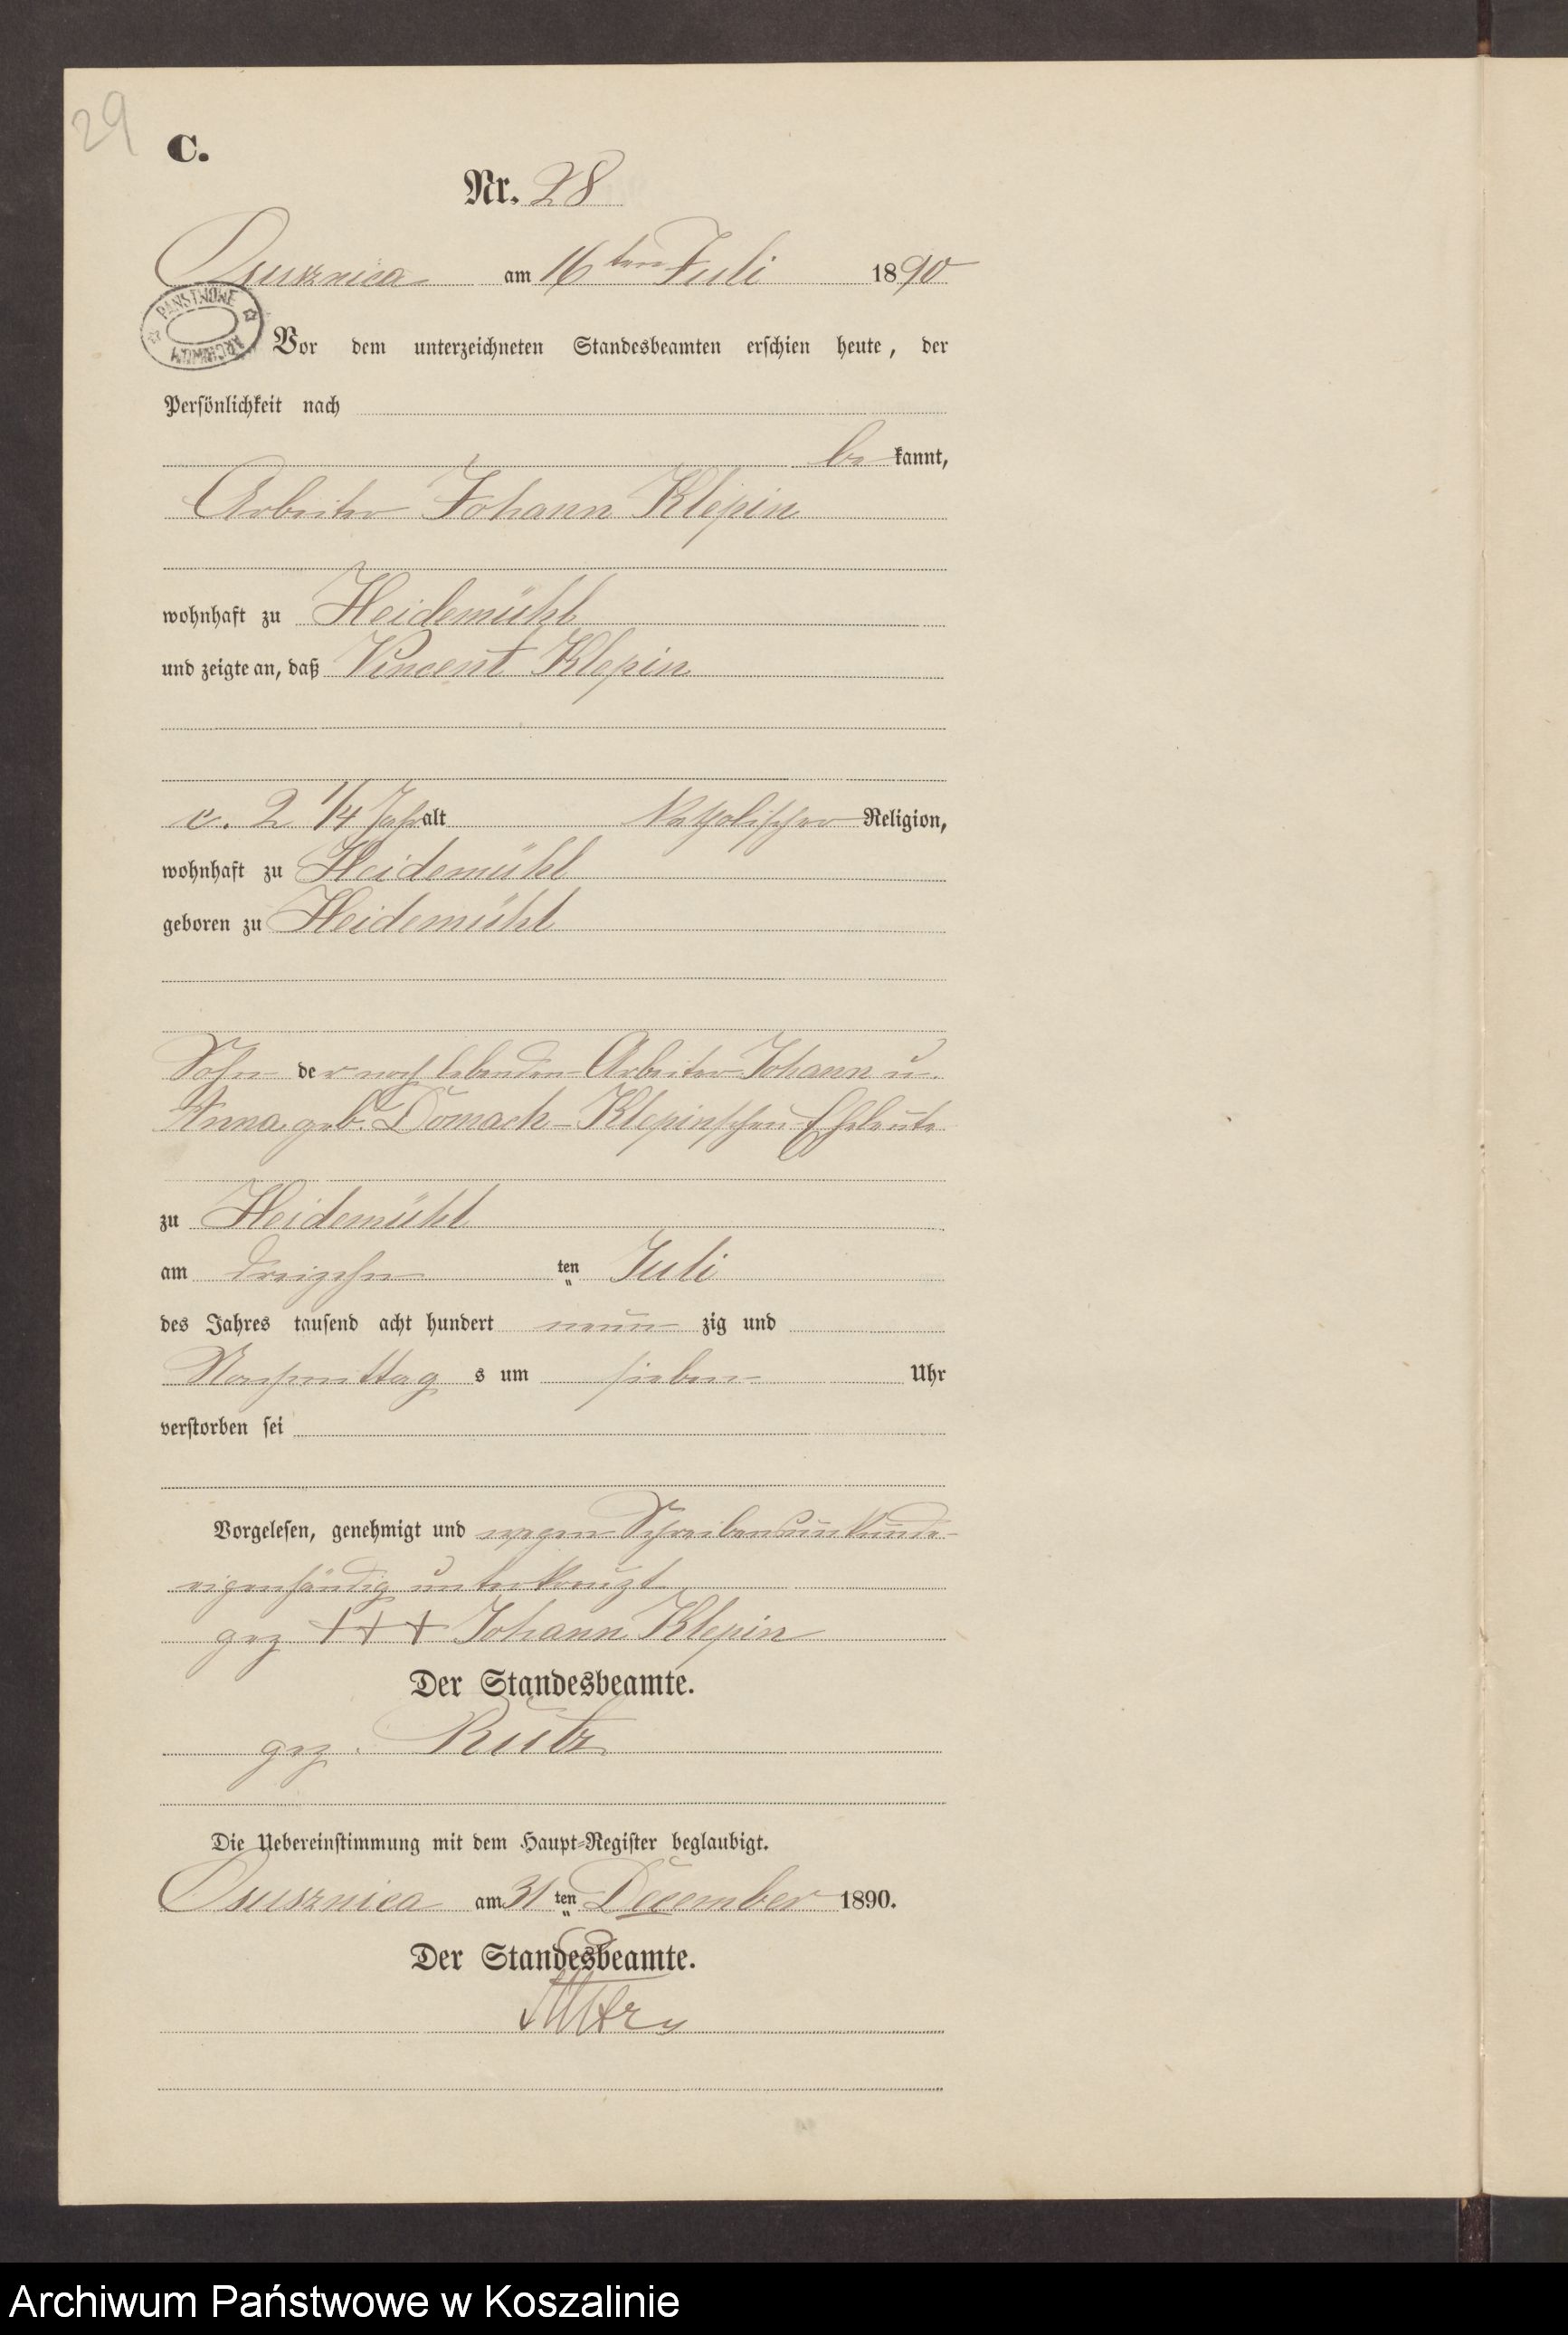 29
C.
Nr. 28
Osusznica am 16ten Juli 1890
PAŃSTWOWE ARCHIWUM
Vor dem unterzeichneten Standesbeamten erschien heute, der
Persönlichkeit nach
bekannt,
Arbeiter Johann Klepin
wohnhaft zu Heidemühl
und zeigte an, daß Vincent Klepin
c. 2 1/4 Jahr alt katholischer Religion,
wohnhaft zu Heidemühl
geboren zu Heidemühl
Sohn der noch lebenden Arbeiter Johann u.
Anna geb. Domach-Klepinschen Eheleute
zu Heidemühl
am dreizehn ten Juli
des Jahres tausend acht hundert neun zig und
Nachmittag s um sieben Uhr
verstorben sei
Vorgelesen, genehmigt und wegen Schreibensunkunde
eigenhändig unterkreuzt
gez +++ Johann Klepin
Der Standesbeamte.
gez. Rutz
Die Uebereinstimmung mit dem Haupt-Register beglaubigt.
Osusznica am 31 ten December 1890.
Der Standesbeamte.
Archiwum Państwowe w Koszalinie